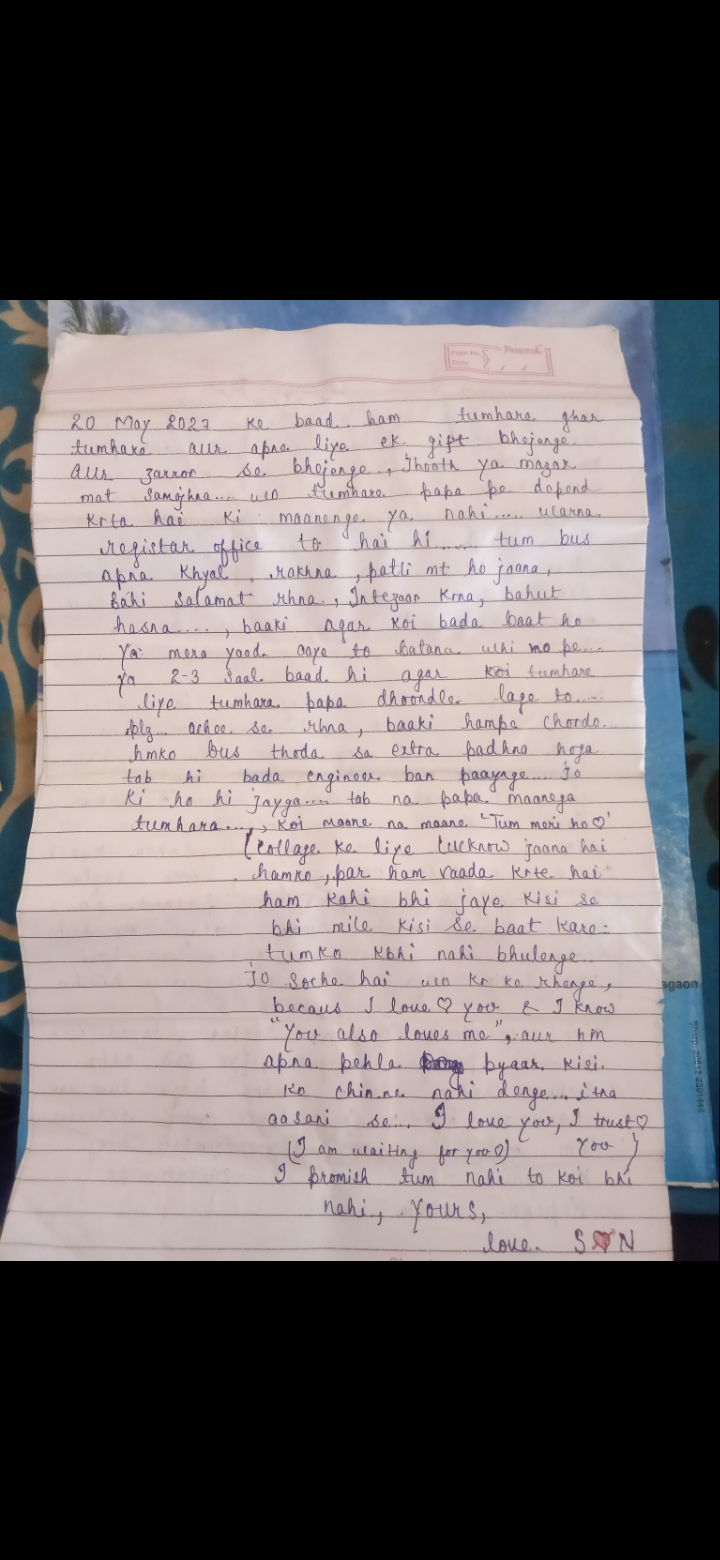 Page No.
Date
20 May 2027 ke baad ham tumhare ghar
tumhare aur apne liye ek gift bhejenge.
aur zarror se bhejenge, Jhooth ya mazak
mat samajhna.... wo tumhare papa pe depend
krta hai ki maanenge ya nahi.... warna
registar office to hai hi....... tum bus
apna khyal rakhna, patli mt ho jaana,
sahi salamat rhna, Intezaar krna, bahut
hasna...., baaki agar koi bada baat ho
ya mera yaad aaye to batana usi no pe...
ya 2-3 saal baad hi agar koi tumhare
liye tumhara papa dhoondle lage to....
plz achee se rhna, baaki hampe chordo...
hmko bus thoda sa extra padhne hoga
tab hi bada engineer ban paaynge.... jo
ki ho hi jayga.... tab na papa maanega
tumhara...., koi maane na maane "Tum meri ho♡"
(Collage ke liye Lucknow jaana hai
hamko, par ham vaada krte hai
ham kahi bhi jaye kisi se
bhi mile kisi se baat kare
tumko kbhi nahi bhulenge...
jo soche hai wo kr ke rhenge,
becaus I love♡ you & I know
"You also loves me", aur hm
apna pehla pyaar kisi
ko chinne nahi denge... itna
aasani se... I love you, I trust♡
(I am waiting for you♡) You)
I promish tum nahi to koi bhi
nahi, Yours,
love S♥N
agaon